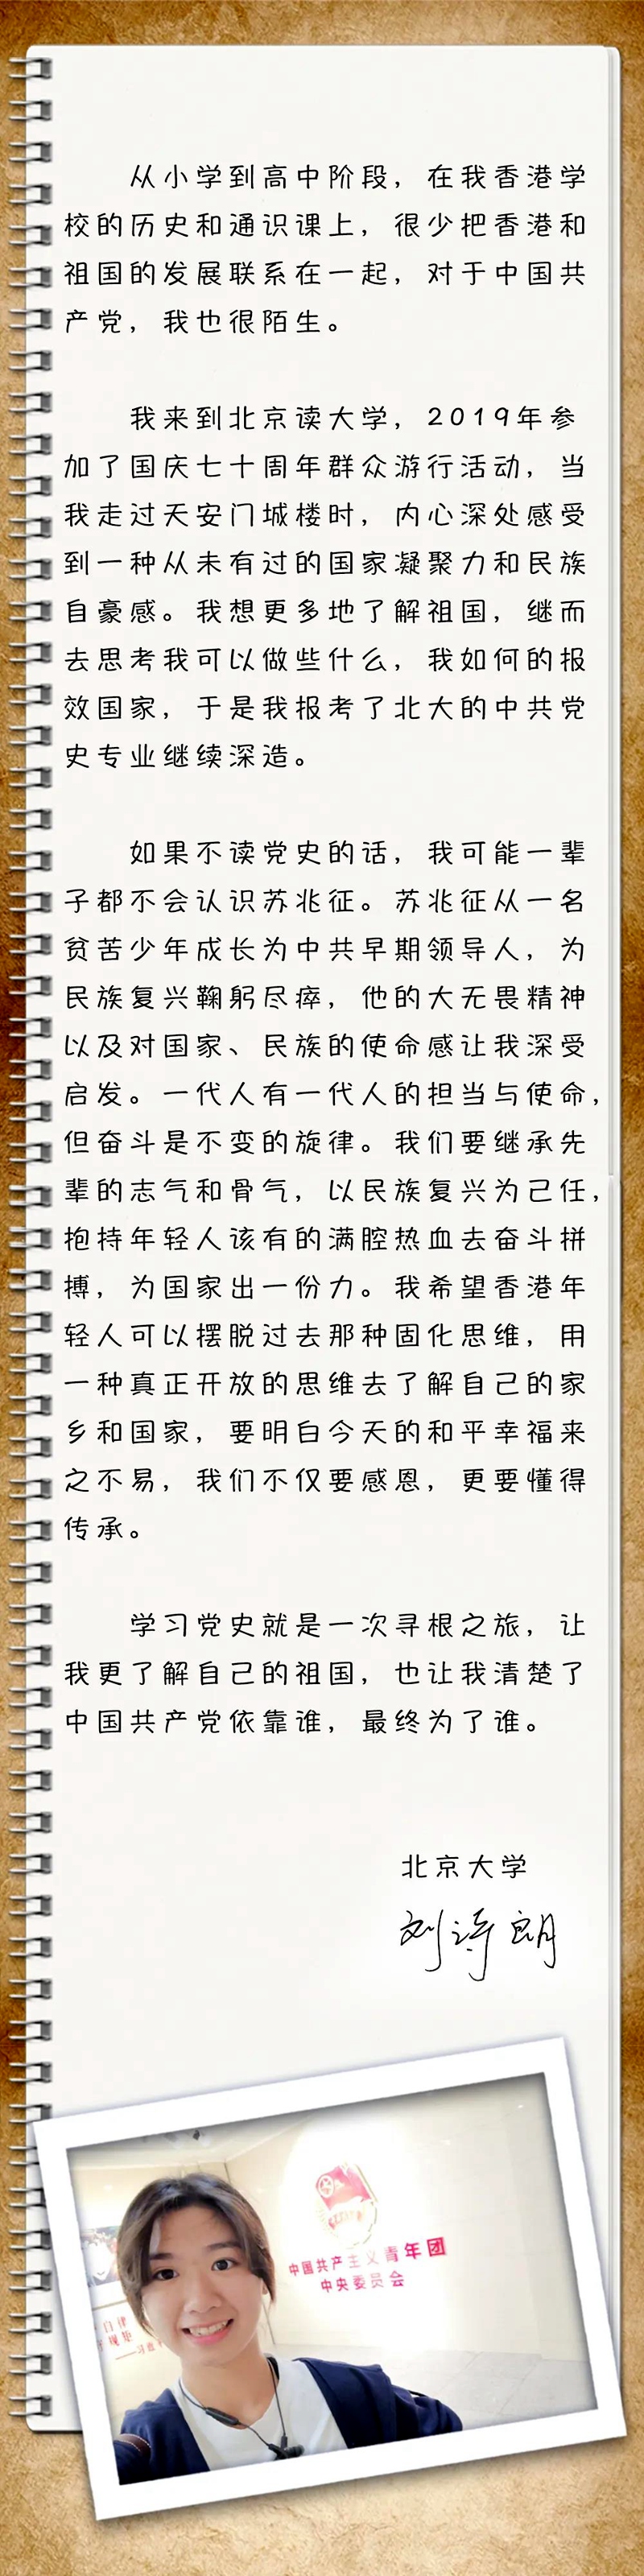 从小学到高中阶段，在我香港学
校的历史和通识课上，很少把香港和
祖国的发展联系在一起，对于中国共
产党，我也很陌生。
我来到北京读大学，2019年参
加了国庆七十周年群众游行活动，当
我走过天安门城楼时，内心深处感受
到一种从未有过的国家凝聚力和民族
自豪感。我想更多地了解祖国，继而
去思考我可以做些什么，我如何的报
效国家，于是我报考了北大的中共党
史专业继续深造。
如果不读党史的话，我可能一辈
子都不会认识苏兆征。苏兆征从一名
贫苦少年成长为中共早期领导人，为
民族复兴鞠躬尽瘁，他的大无畏精神
以及对国家、民族的使命感让我深受
启发。一代人有一代人的担当与使命，
但奋斗是不变的旋律。我们要继承先
辈的志气和骨气，以民族复兴为己任，
抱持年轻人该有的满腔热血去奋斗拼
搏，为国家出一份力。我希望香港年
轻人可以摆脱过去那种固化思维，用
一种真正开放的思维去了解自己的家
乡和国家，要明白今天的和平幸福来
之不易，我们不仅要感恩，更要懂得
传承。
学习党史就是一次寻根之旅，让
我更了解自己的祖国，也让我清楚了
中国共产党依靠谁，最终为了谁。
北京大学
刘诗朗
中国共产主义青年团
中央委员会
自律
规矩